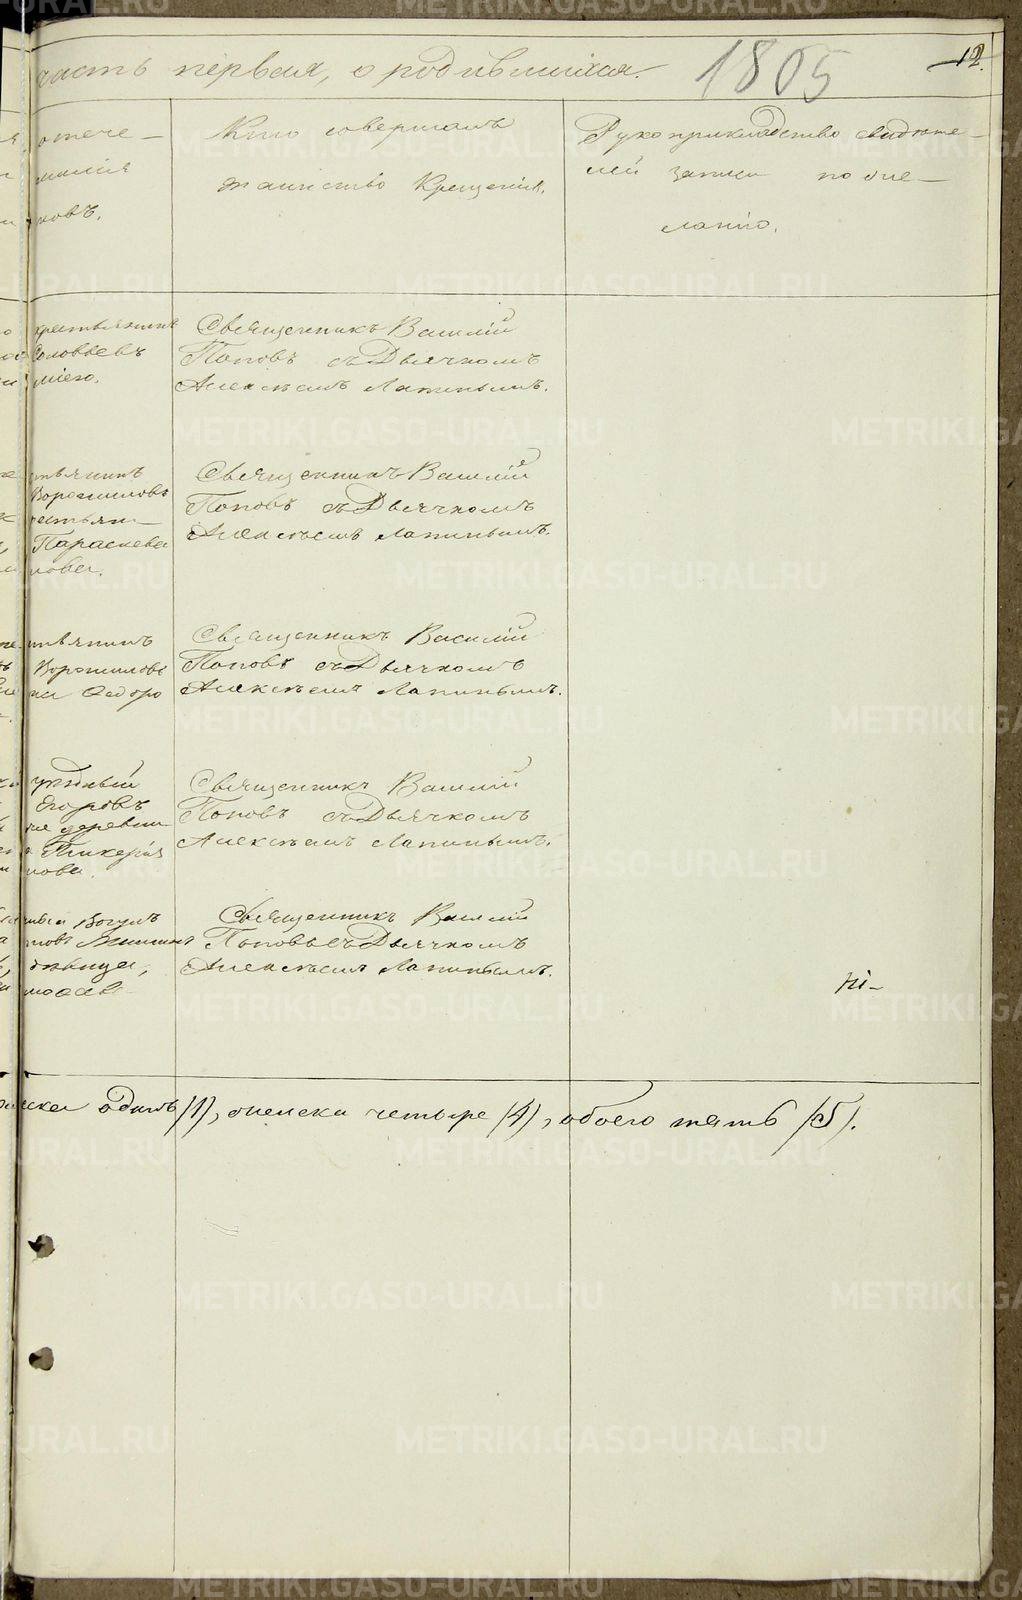 часть первая, о родившихся.
1805
12.
отече-
милія
ковъ.
Кто совершалъ
таинство Крещенія.
Рукоприкладство свидѣте-
лей записи по же-
ланію.
крестьянинъ
Соловьевъ
міего.
Священникъ Василій
Поповъ съ Дьячкомъ
Алексѣемъ Лапинымъ.
тьянинъ
Ворошиловъ
рестьян-
Параскева
лова.
Священникъ Василій
Поповъ съ Дьячкомъ
Алексѣемъ Лапинымъ.
тьянинъ
Ворошиловъ
на Ѳедоро
Священникъ Василій
Поповъ съ Дьячкомъ
Алексѣемъ Лапинымъ.
Егоровъ
деревни
Гликерія
нова.
Священникъ Василій
Поповъ съ Дьячкомъ
Алексѣемъ Лапинымъ.
Вогулъ
дѣвица,
Священникъ Василій
Поповъ съ Дьячкомъ
Алексѣемъ Лапинымъ.
Ні-
одинъ /1/, женска четыре /4/, обоего пять /5/.
METRIKI.GASO-URAL.RU